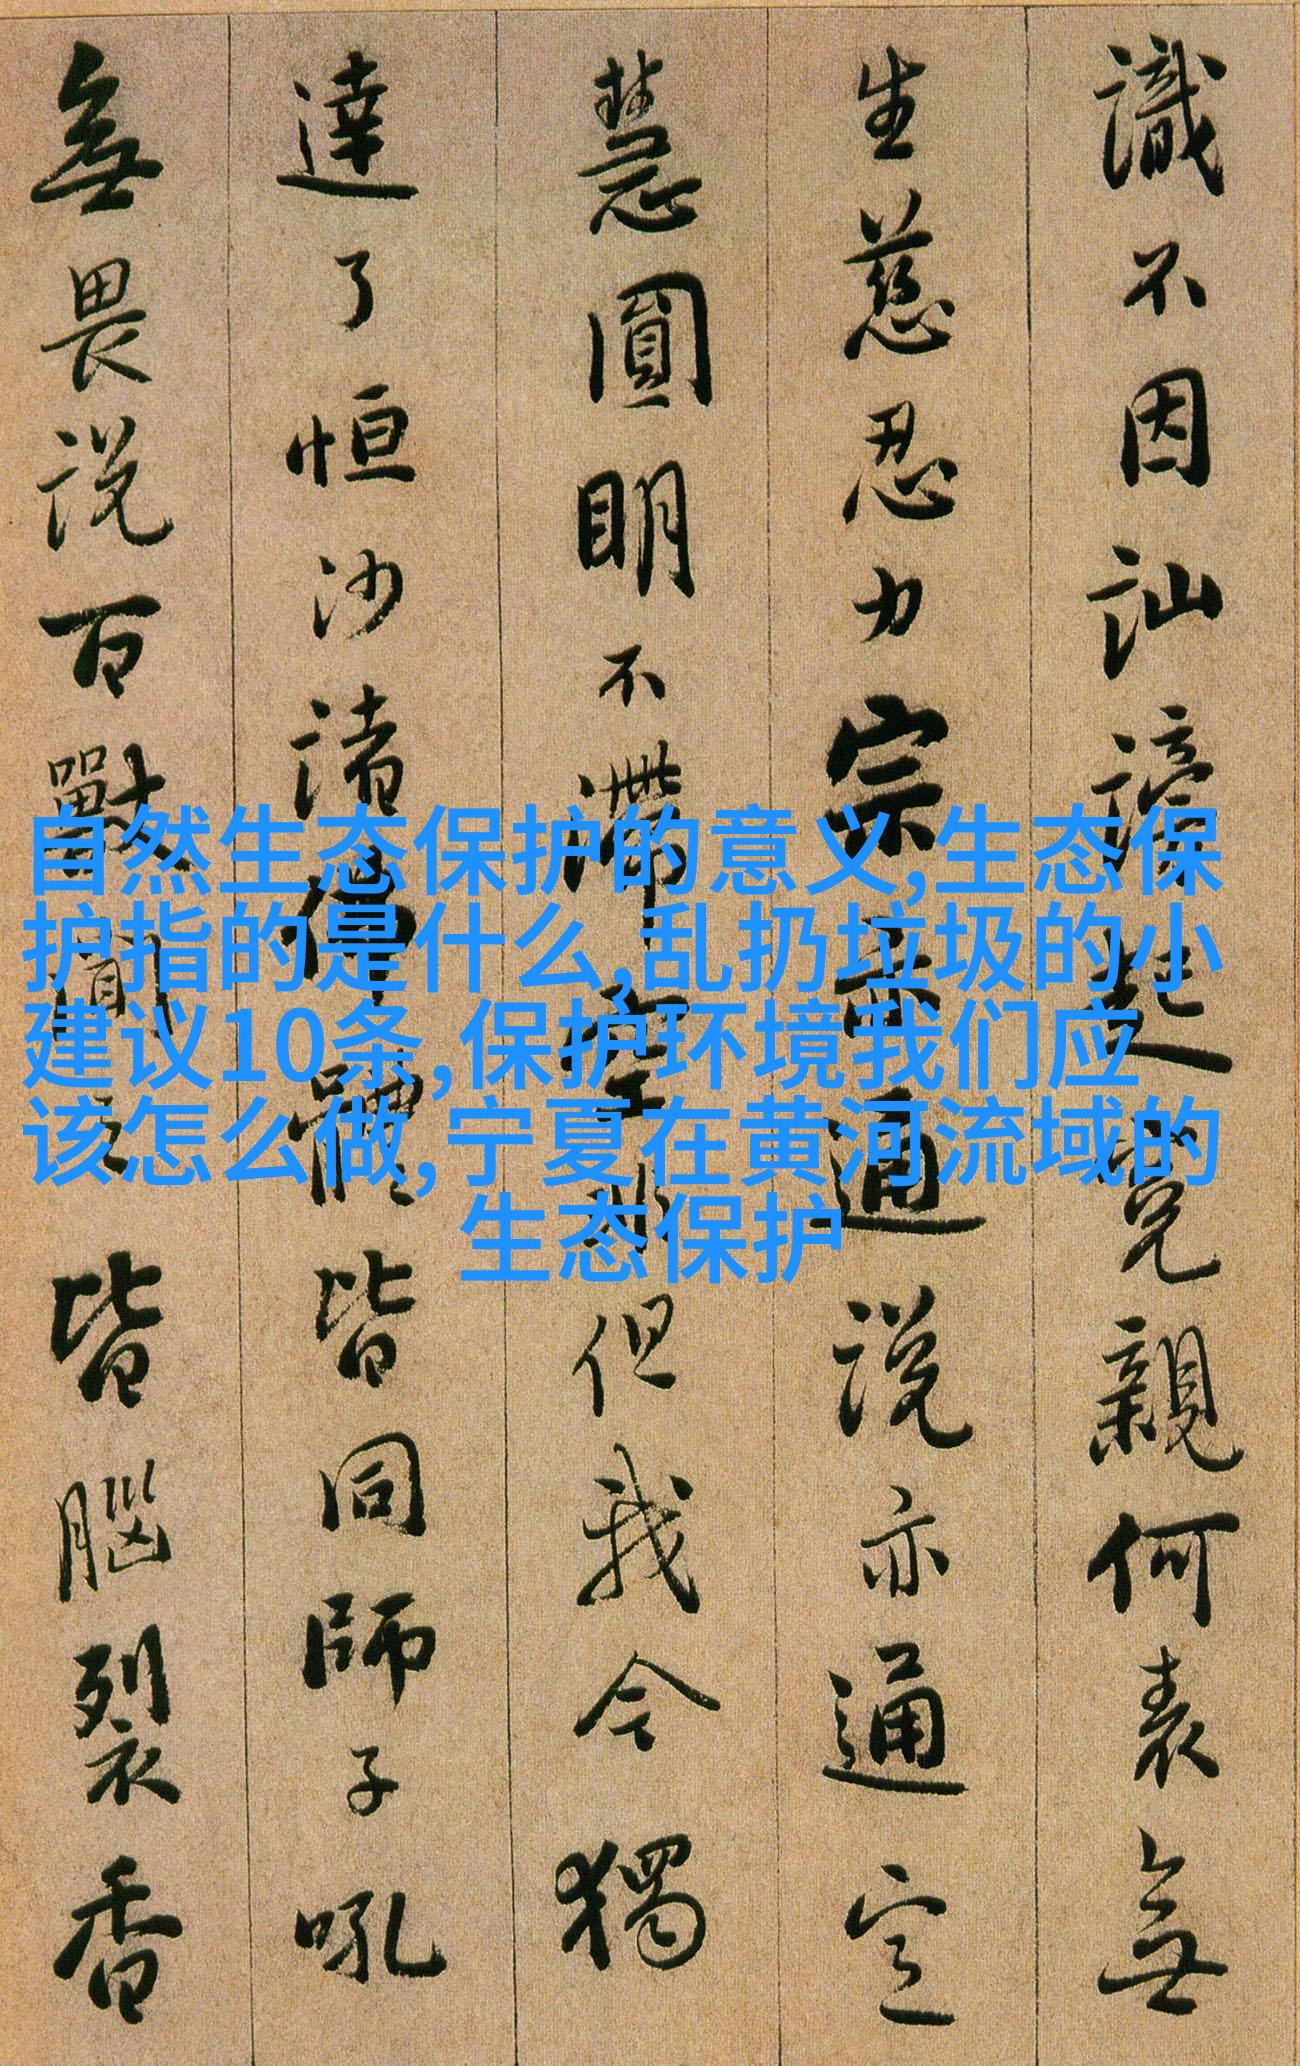 識不因訕謗起冤親何表無
生慈忍力宗亦通說亦通定
慧圓明不滯空非但我今獨
達了恒沙諸佛體皆同師子吼
無畏說百獸聞皆腦裂香
自然生态保护的意义,生态保
护指的是什么,乱扔垃圾的小
建议10条,保护环境我们应
该怎么做,宁夏在黄河流域的
生态保护